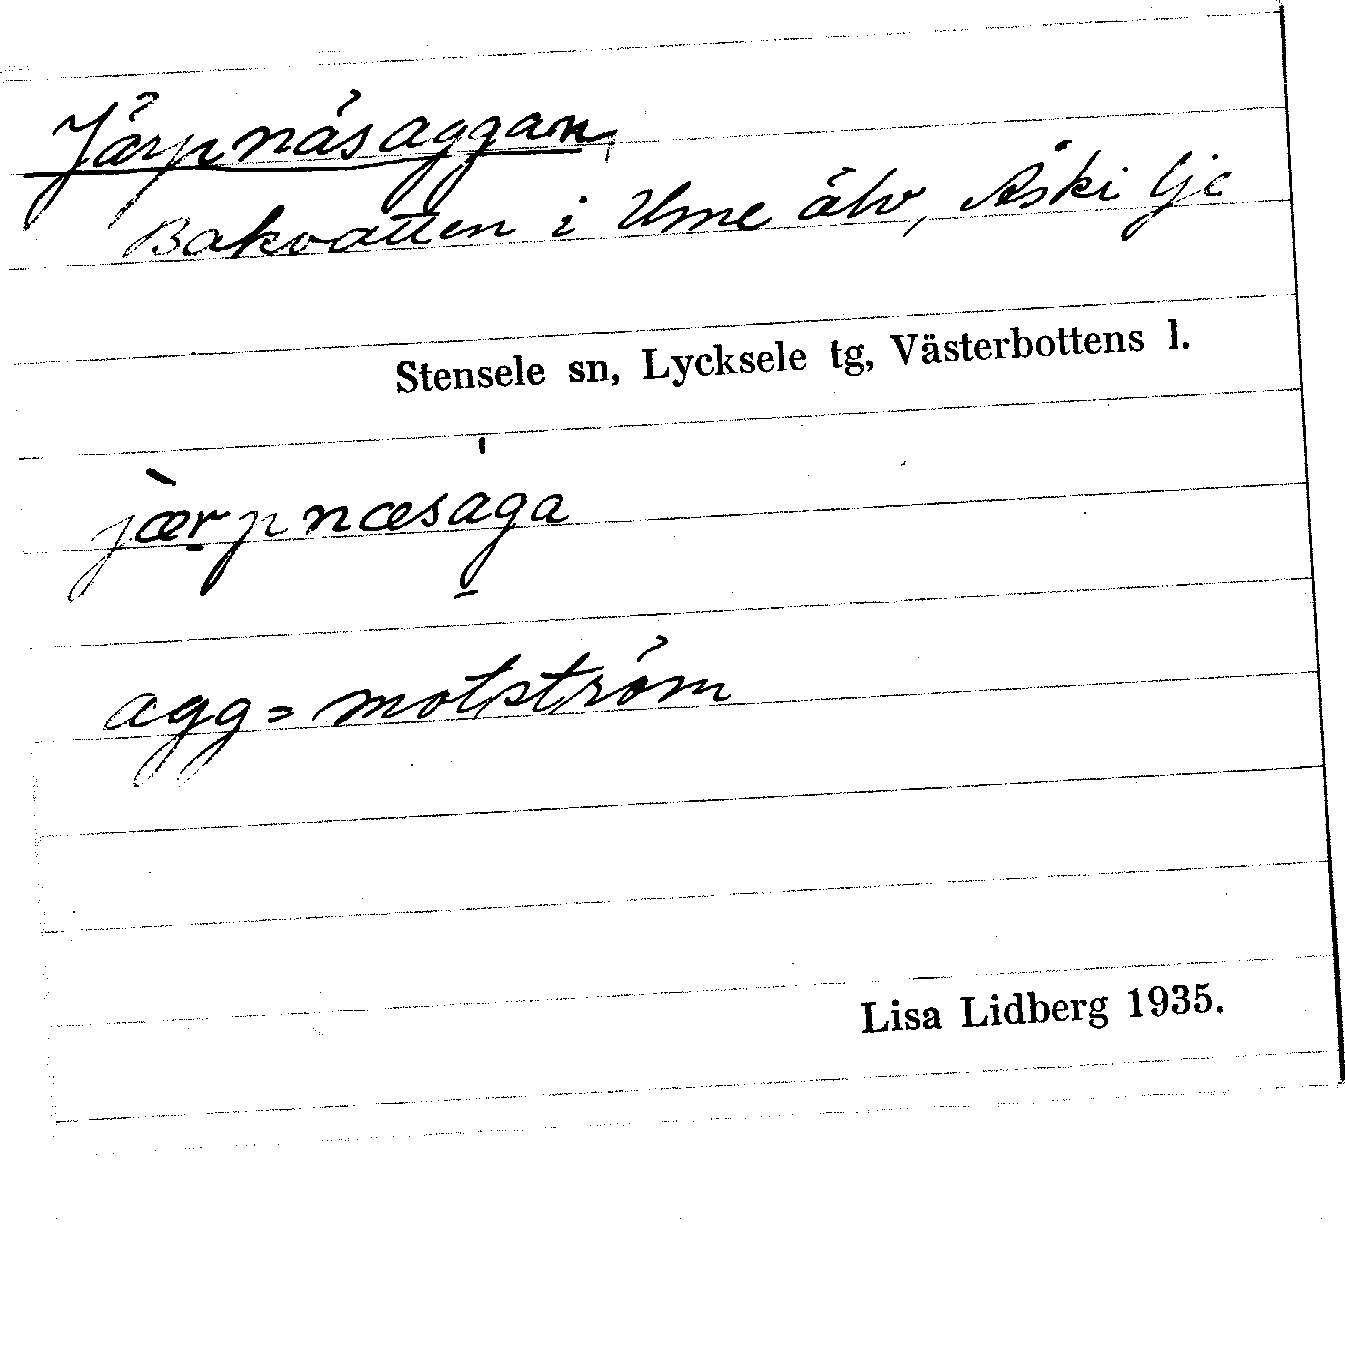 Järpnäsaggan,
Bakvatten i Ume älv, Åskilje
Stensele sn, Lycksele tg, Västerbottens l.
jæ̀rpnæsága
agg = motström
Lisa Lidberg 1935.